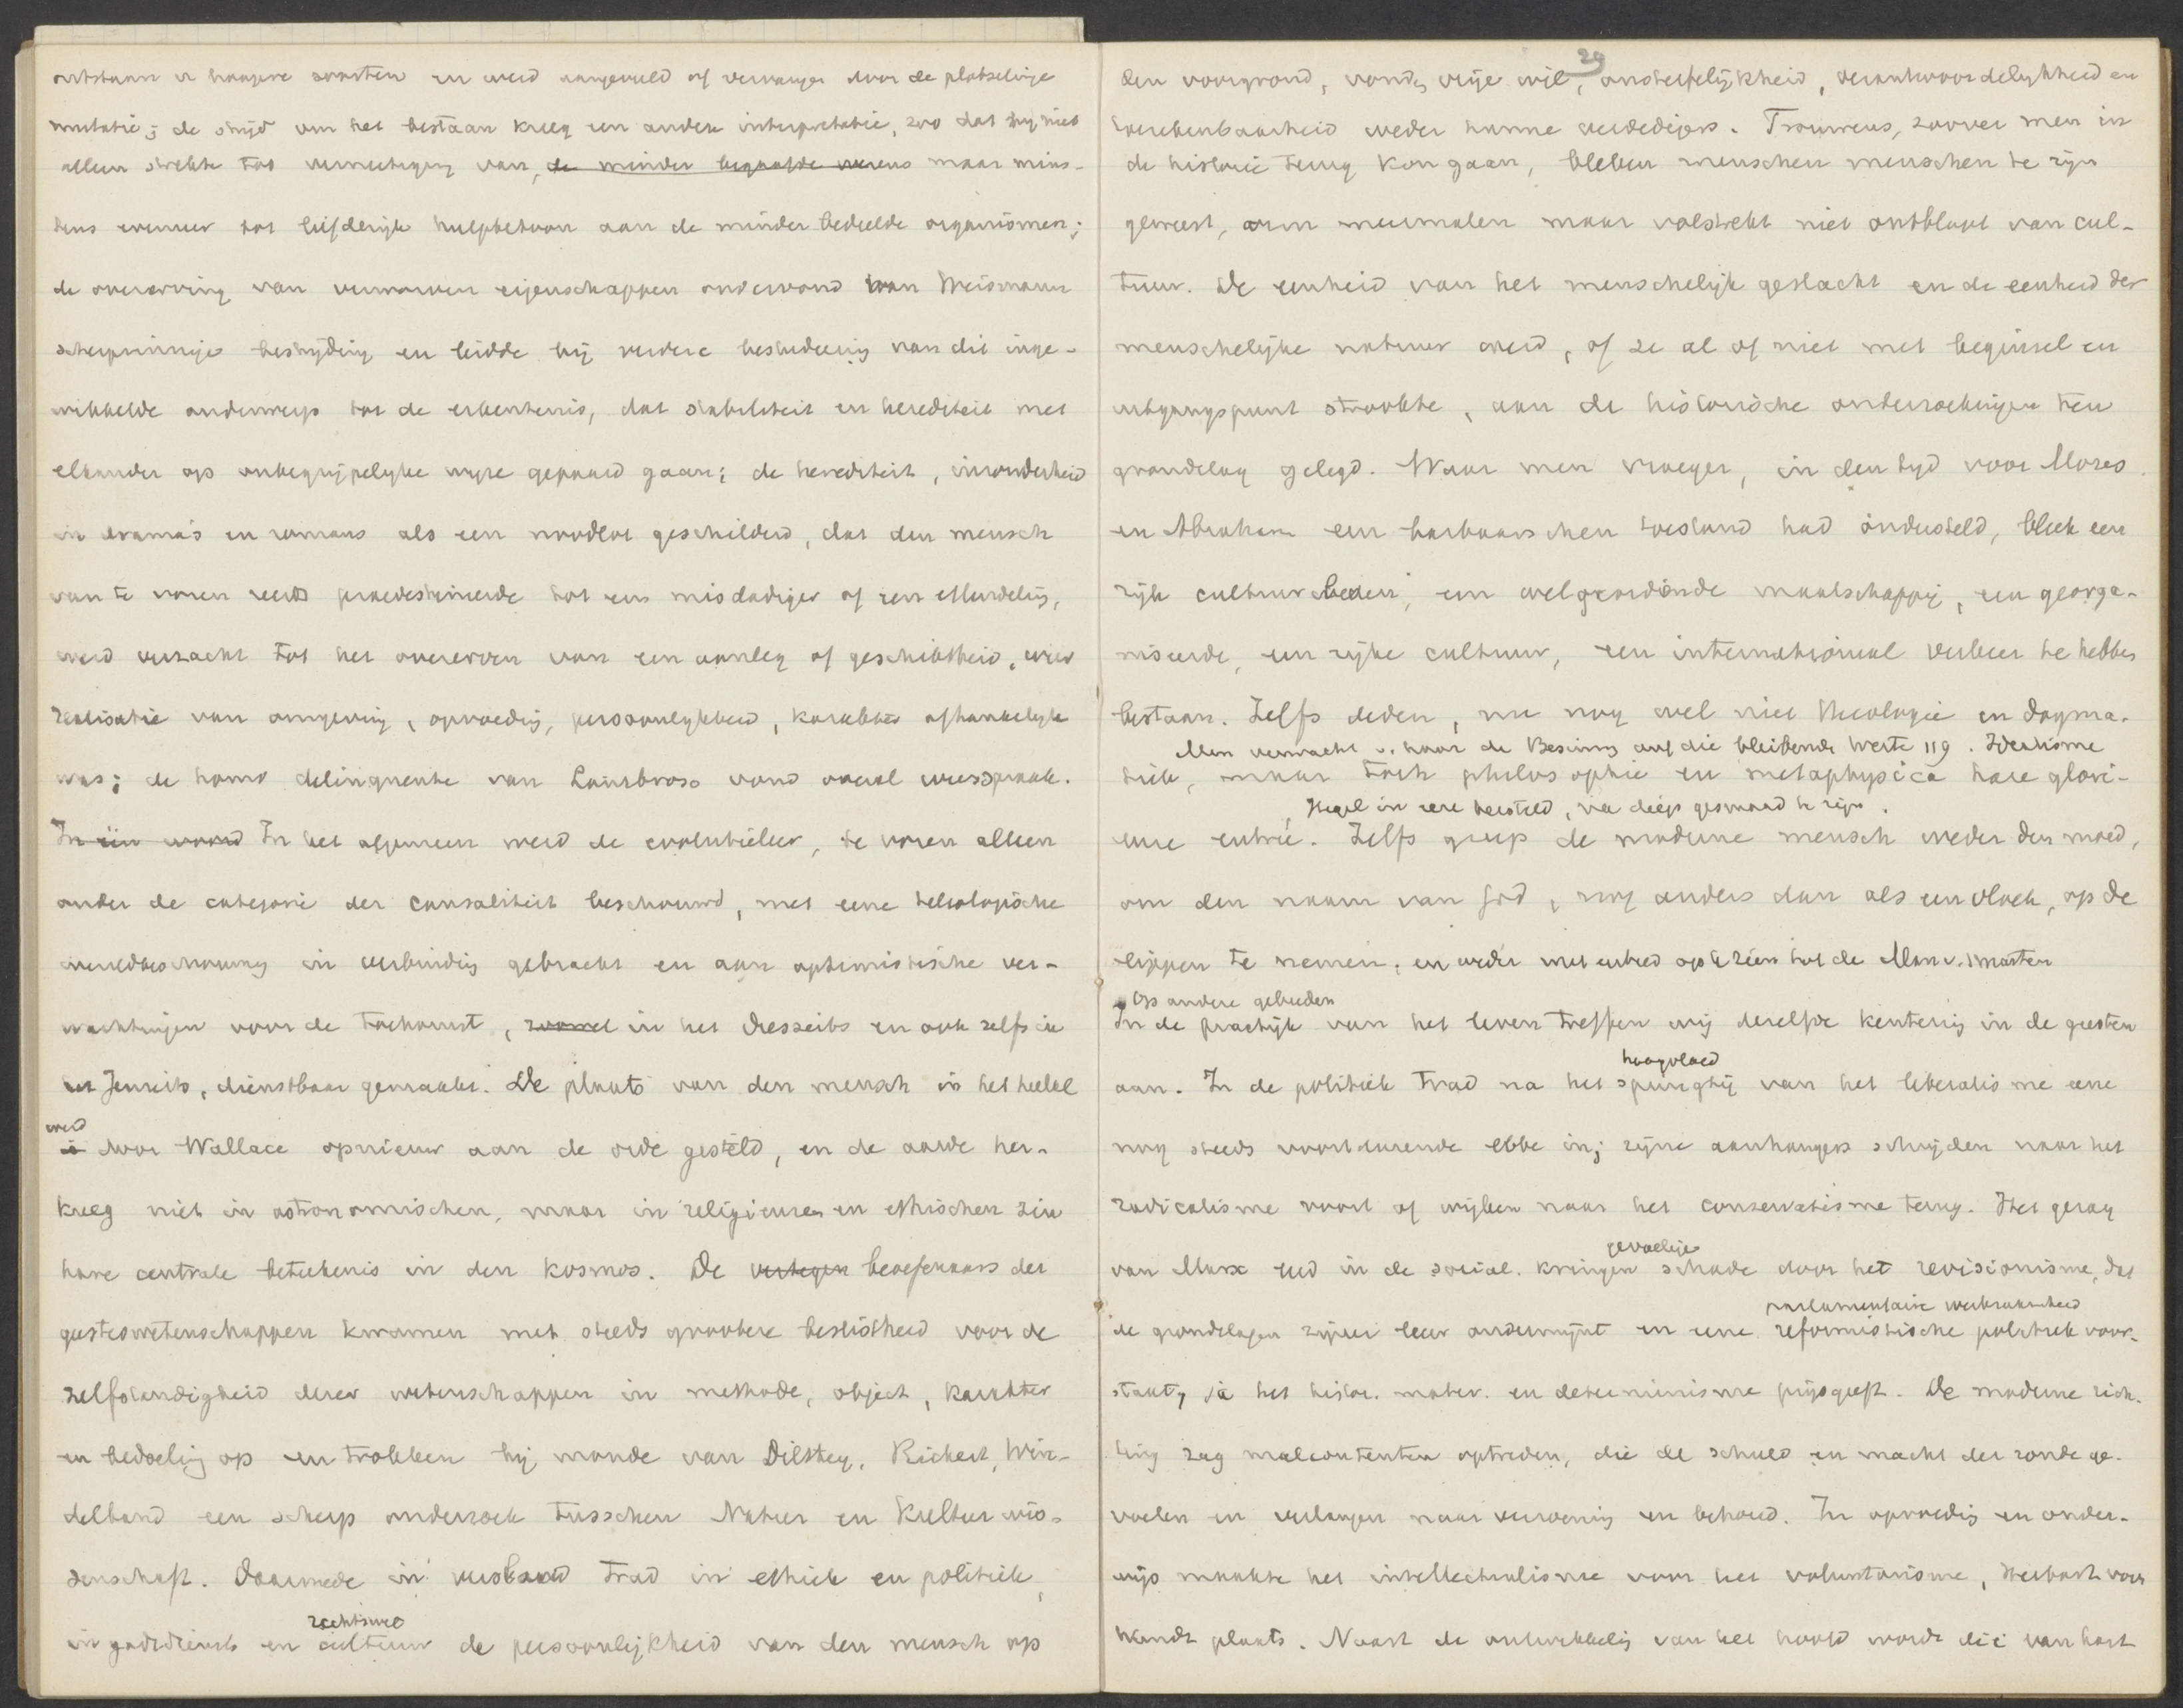 ontstaan der hoogere soorten en werd aangevuld of vervangen door de plotselinge
mutatie; de strijd om het bestaan kreeg een andere interpretatie, zoo dat hij niet
alleen strekte tot vernietiging van, de minder begaafde wezens maar mins-
tens evenzeer tot liefderijk hulpbetoon aan de minder bedeelde organismen;
de overerving van verworven eigenschappen ondervond van Weismann
scherpzinnige bestrijding en leidde bij verdere bestudeering van dit inge-
wikkelde onderwerp tot de erkentenis, dat stabiliteit en herediteit met
elkander op onbegrijpelijke wijze gepaard gaan; de herediteit, inzonderheid
in drama's en romans als een noodlot geschilderd, dat den mensch
van te voren reeds praedestineerde tot een misdadiger of een ellendeling,
werd verzacht tot het overerven van een aanleg of geschiktheid, wier
realisatie van omgeving, opvoeding, persoonlijkheid, karakter afhankelijk
was; de homo delinquente van Lombroso vond overal weerspraak.
In één woord In het algemeen werd de evolutieleer, te voren alleen
onder de categorie der causaliteit beschouwd, met eene teleologische
wereldbeschouwing in verbinding gebracht en aan optimistische ver-
wachtingen voor de toekomst, zoowel in het Diesseits en ook zelfs in
het Jenseits, dienstbaar gemaakt. De plaats van den mensch in het heelal
werd
is door Wallace opnieuw aan de orde gesteld, en de aarde her-
kreeg niet in astronomischen, maar in religieuzen en ethischen zin
hare centrale beteekenis in den kosmos. De beoefenaars der
geesteswetenschappen kwamen met steeds grootere beslistheid voor de
zelfstandigheid dezer wetenschappen in methode, object, karakter
en bedoeling op en trokken bij monde van Dilthey, Rickert, Win-
delband een scherp onderzoek tusschen Natur en Kultur wis-
senschaft. Daarmede in verband trad in ethiek en politiek,
rechtswet
in godsdienst en cultuur de persoonlijkheid van den mensch op
29
den voorgrond, vonden vrije wil, onsterfelijkheid, verantwoordelijkheid en
toerekenbaarheid weder hunne verdedigers. Trouwens, zoover men in
de historie terug kon gaan, bleken menschen menschen te zijn
geweest, arm meermalen maar volstrekt niet ontbloot van cul-
tuur. De eenheid van het menschelijk geslacht en de eenheid der
menschelijke natuur werd, of ze al of niet met beginsel en
uitgangspunt strookte, aan de historische onderzoekingen ten
grondslag gelegd. Waar men vroeger, in den tijd voor Mozes
en Abraham een barbaarschen toestand had ondersteld, bleek een
rijk cultuurleven, een welgeordende maatschappij, een georga-
niseerde, een rijke cultuur, een internationaal verkeer te hebben
bestaan. Zelfs deden, nu nog wel niet theologie en dogma-
Men verwacht v. haar de Besinnung auf die bleibende Werte 119. Idealisme
tiek, maar toch philosophie en metaphysica hare glori-
Hegel in eere hersteld, na diep gesmaad te zijn.
euse entrée. Zelfs greep de moderne mensch weder den moed,
om den naam van God, nog anders dan als een vloek, op de
lippen te nemen, en weder met eerbied op te zien tot de Man v. smarten
Op andere gebieden
In de practijk van het leven treffen wij dezelfde kentering in de geesten
hoogvloed
aan. In de politiek trad na het springtij van het liberalisme eene
nog steeds voortdurende ebbe in; zijne aanhangers schrijden naar het
radicalisme voort of wijken naar het conservatisme terug. Het gezag
gevoelige
van Marx leed in de social. kringen schade door het revisionisme, dat
parlementaire werkzaamheid
de grondslagen zijner leer ondermijnt en eene reformistische politiek voor-
staat, ja het histor. mater. en determinisme prijsgeeft. De moderne rich-
ting zag malcontenten optreden, die de schuld en macht der zonde ge-
voelen en verlangen naar verzoening en behoud. In opvoeding en onder-
wijs maakte het intellectualisme voor het voluntarisme, Herbart voor
Wundt plaats. Naast de ontwikkeling van het hoofd wordt die van hart